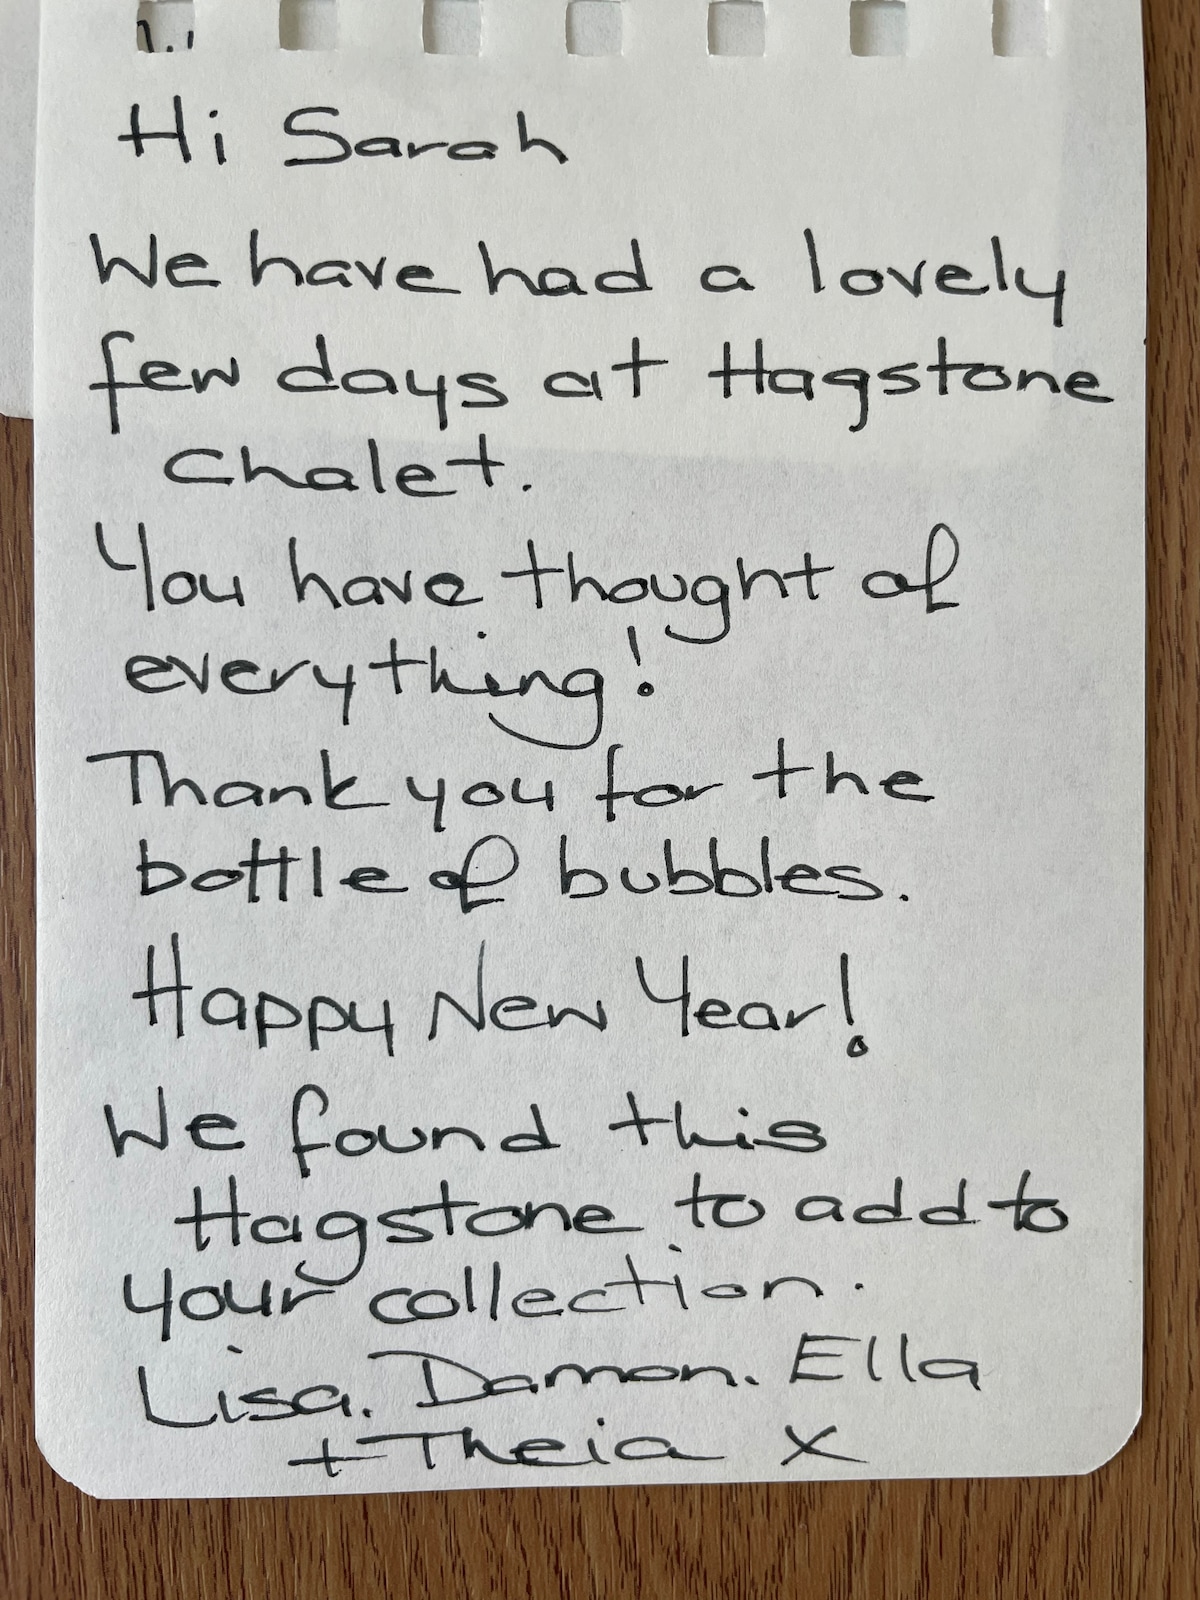 Hi Sarah
We have had a lovely
few days at Hagstone
Chalet.
You have thought of
everything!
Thank you for the
bottle of bubbles.
Happy New Year!
We found this
Hagstone to add to
your collection.
Lisa. Damon. Ella
+ Theia x